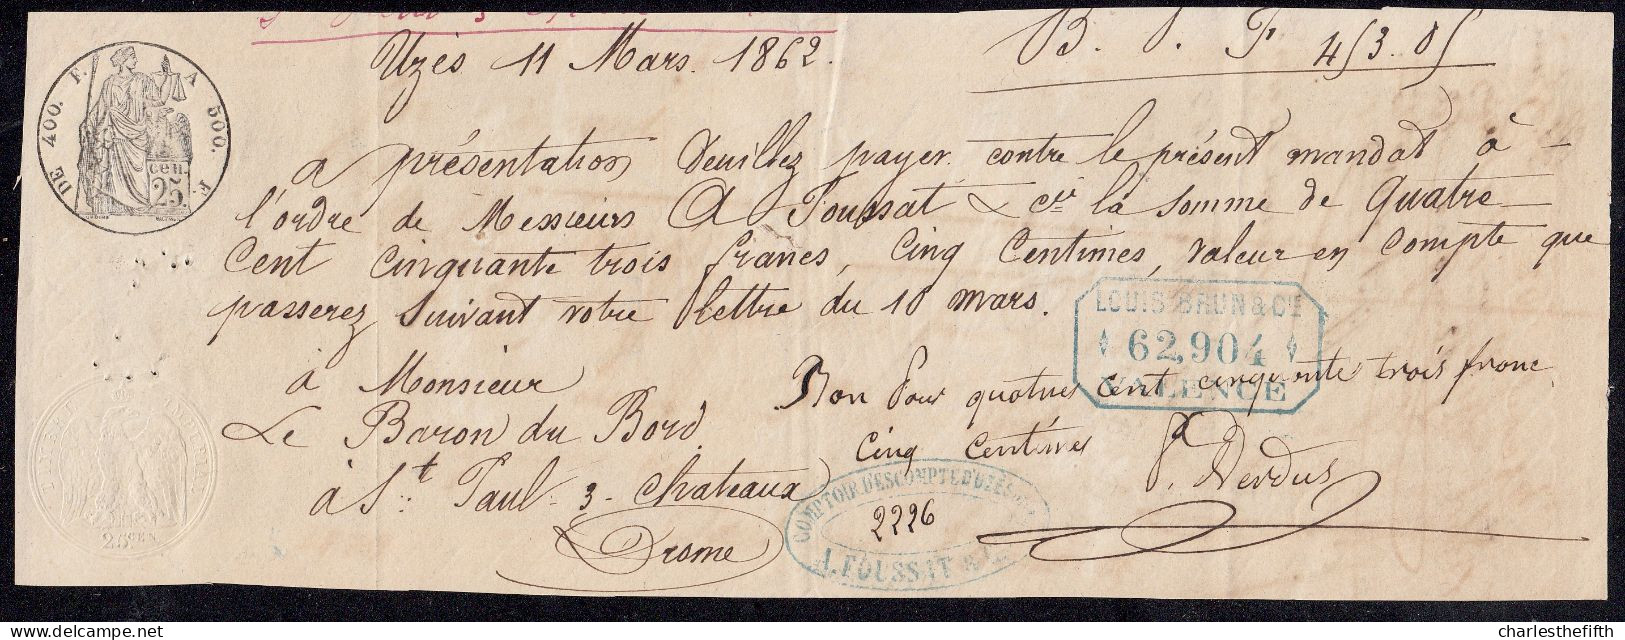 Uzès 11 Mars. 1862.
B. P. F. 453.05
DE 400. F. A 500. F.
cen.
25.
a présentation Veuillez payer contre le présent mandat à
l'ordre de Messieurs A Foussat & Cie la somme de Quatre
Cent Cinquante trois francs, Cinq Centimes, valeur en compte que
passerez suivant votre lettre du 10 mars.
LOUIS BRUN & CIE
62,904
VALENCE
à Monsieur
Le Baron du Bord.
à St. Paul-3-Chateaux
Drome
Bon Pour quatre cent cinquante trois franc
Cinq Centimes
P. Verdus
COMPTOIR D'ESCOMPTE D'UZÈS
2226
A. FOUSSAT &
25 CEN.
charlesthefifth
www.delcampe.net